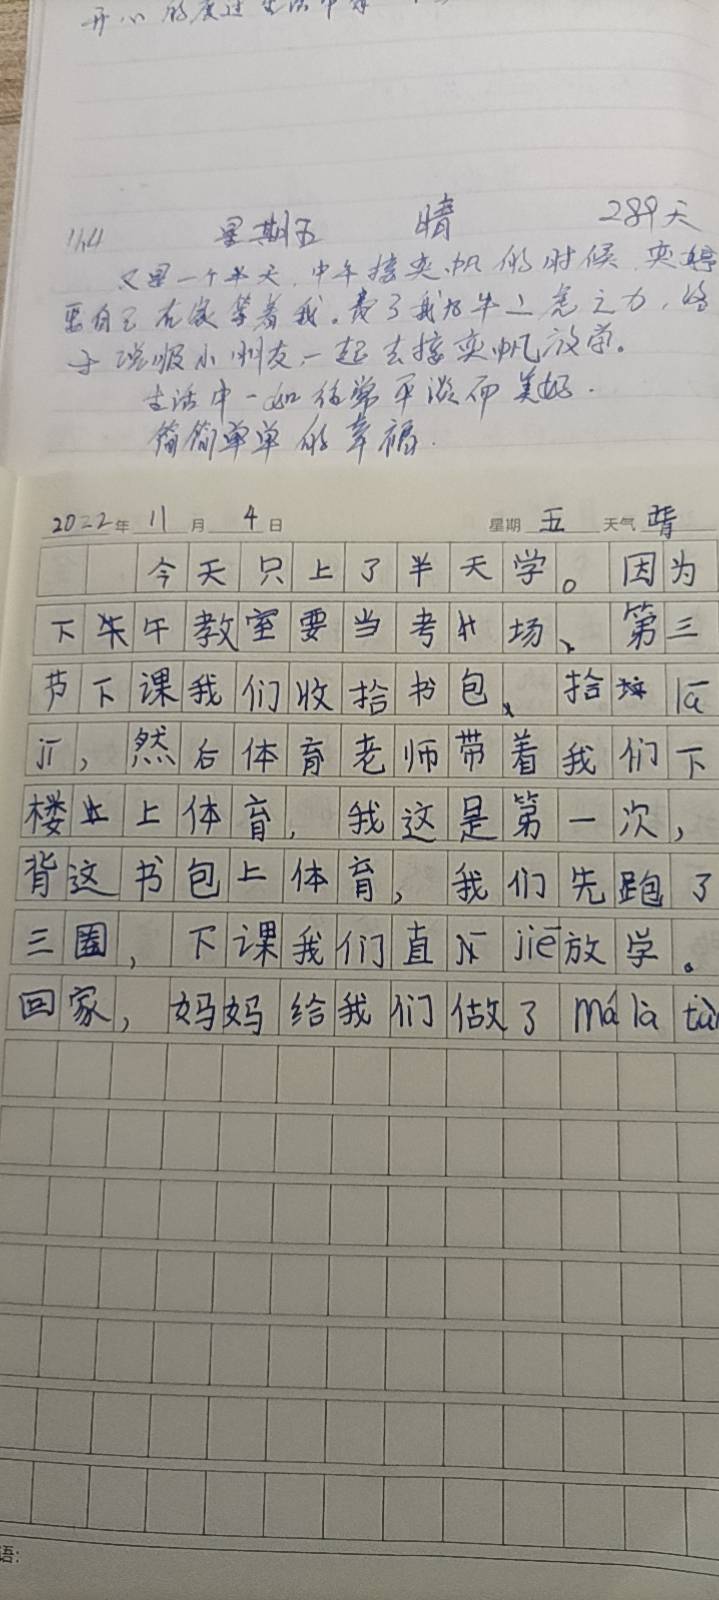 开心的度过生活中每
11.4 星期五 晴 289天
又是一个半天，中午接奕帆的时候，奕婷
要自己在家等着我。费了我九牛二虎之力，终
于说服小朋友，一起去接奕帆放学。
生活中一如往常平淡而美好.
简简单单的幸福.
2022年 11月 4日 星期 五 天气 晴
今天只上了半天学。因为
下午教室要当考场、第三
节下课我们收拾书包、拾 lā
jī，然后体育老师带着我们下
楼上体育，我这是第一次，
背这书包上体育，我们先跑了
三圈，下课我们直 jiē放学。
回家，妈妈给我们做了 má là tàn
语: